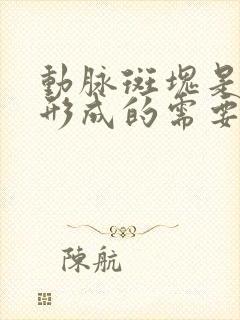 動脉斑塊是
形成的需要
陳航